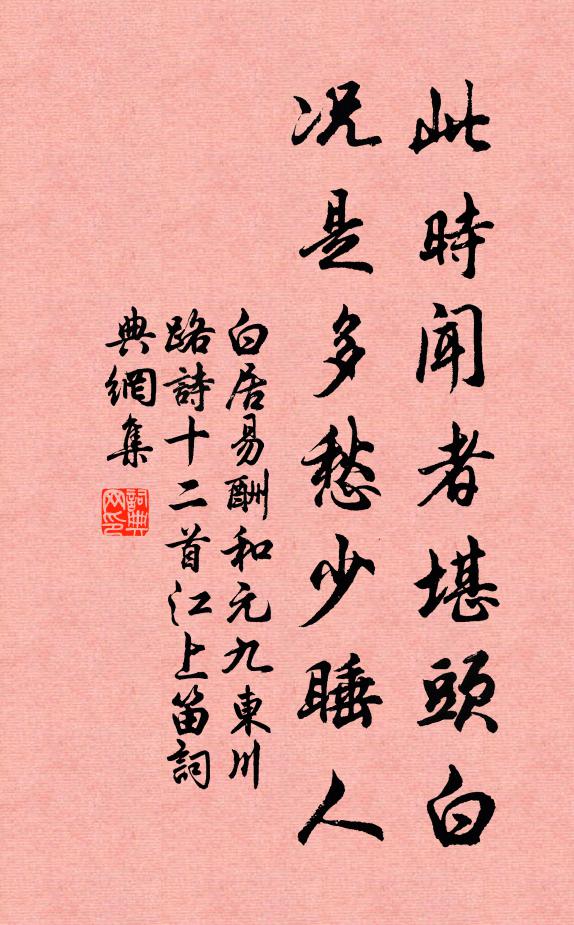 此時聞者堪頭白
況是多愁少睡人
白居易酬和元九東川
路詩十二首江上笛詞
典網集
詞典网印